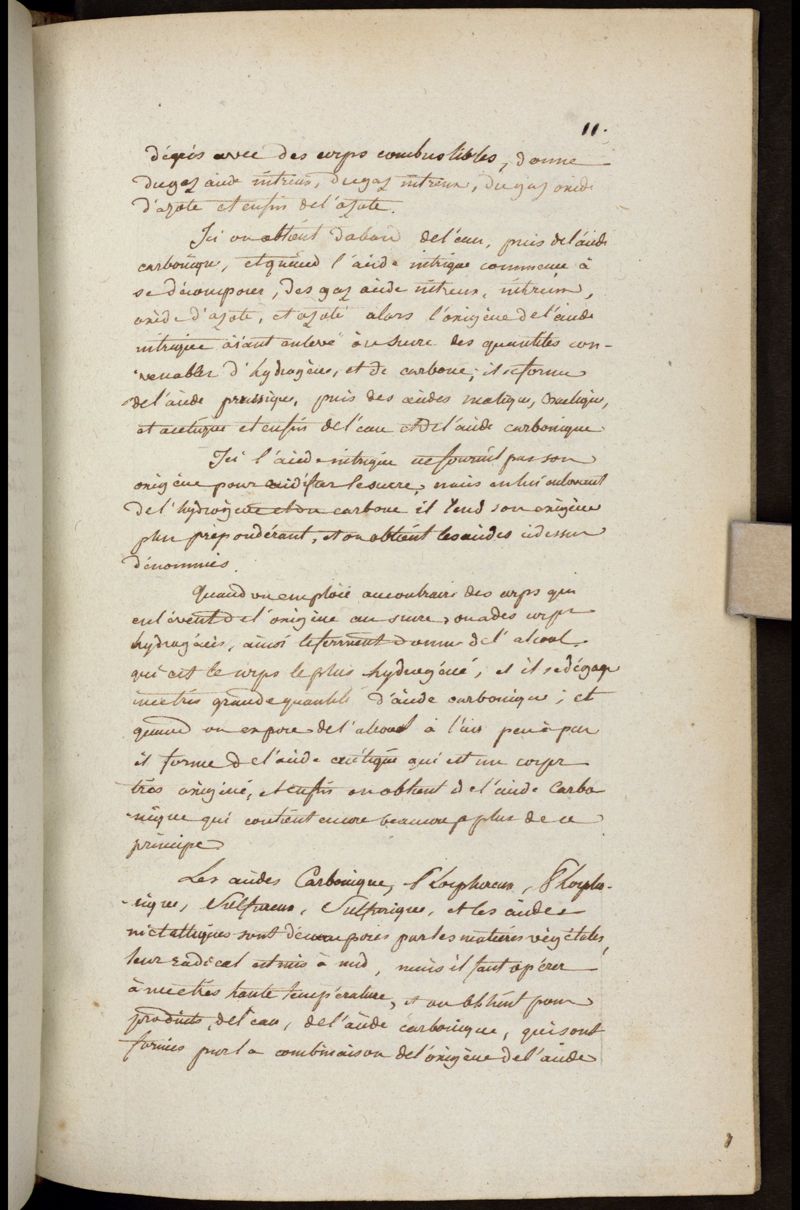 11.
dégrés avec des corps combustibles, donne
du gaz acide nitreux, du gaz nitreux, du gaz oxide
d'azote et enfin de l'azote.
Ici on obtient d'abord de l'eau, puis de l'acide
carbonique, et quand l'acide nitrique commence à
se décomposer, des gaz acide nitreux, nitreux,
oxide d'azote, et azote alors l'oxigène de l'acide
nitrique aiant enlevé au sucre des quantités con-
-venables d'hydrogène, et de carbone, il se forme
de l'acide prussique, puis des acides malique, oxalique,
et acétique et enfin de l'eau et de l'acide carbonique.
Ici l'acide nitrique ne fournit pas son
oxigène pour acidifier le sucre, mais en lui enlevant
de l'hydrogène et du carbone il rend son oxigène
plus prépondérant, et on obtient les acides ci dessus
dénommés.
Quand on emploie au contraire des corps qui
enlèvent de l'oxigène au sucre, ou à des corps
hydrogénés, ainsi le ferment donne de l'alcool
qui est le corps le plus hydrogéné, et il se dégage
une très grande quantité d'acide carbonique; et
quand on expose de l'alcool à l'air peu à peu
il forme de l'acide acétique qui est un corps
très oxigéné, et enfin on obtient de l'acide carbo
-nique qui contient encore beaucoup plus de ce
principe.
Les acides Carbonique, Phosphoreux, Phospho-
-rique, Sulfureux, Sulfurique, et les acides
métalliques sont décomposés par les matières végétales,
leur radical est mis à nud, mais il faut opérer
à une très haute température, et on obtient pour
produits, de l'eau, de l'acide carbonique, qui sont
formés par la combinaison de l'oxigène de l'acide